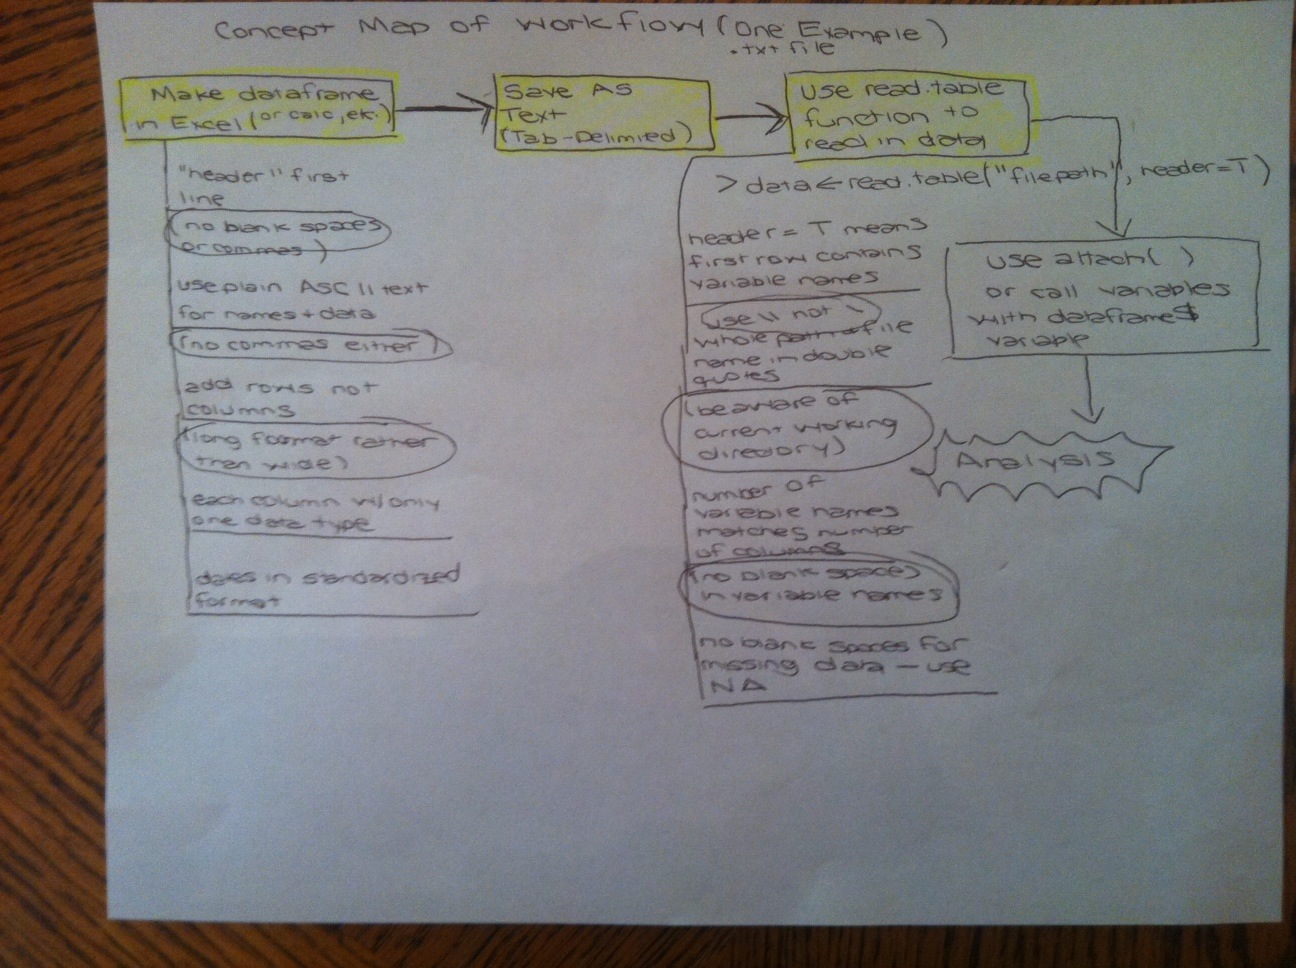 Concept Map of Workflow (One Example)
.txt file
Make dataframe
in Excel (or calc, etc.)
"header" first
line
(no blank spaces
or commas)
use plain ASCII text
for names + data
(no commas either)
add rows not
columns
(long format rather
than wide)
each column w/only
one data type
dates in standardized
format
Save As
Text
(Tab-Delimited)
Use read.table
function to
read in data
> data ← read.table("filepath", header=T)
header = T means
first row contains
variable names
use \\ not \
whole path + file
name in double
quotes
(be aware of
current working
directory)
number of
variable names
matches number
of columns
(no blank spaces
in variable names
no blank spaces for
missing data - use
NA
use attach( )
or call variables
with dataframe$
variable
Analysis